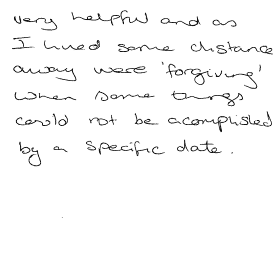 very helpful and as
I lived some distance
away were 'forgiving'
when some things
could not be acomplished
by a specific date.